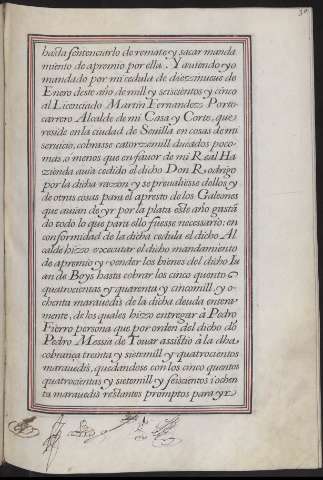 hasta sentenciarlo de remate y sacar manda
miento de apremio por ella. Y auiendo yo
mandado por mi cedula de diez y nueue de
Enero deste año de mill y seiscientos y cinco
al Licenciado Martin Fernandez Porto
carrero Alcalde de mi Casa y Corte, que
reside en la ciudad de Seuilla en cosas de mi
seruicio, cobrasse catorze mill ducados poco
mas, o menos que en fauor de mi Real Ha
zienda auia cedido el dicho Don Rodrigo
por la dicha razon y se preualiesse dellos y
de otras cosas para el apresto de los Galeones
que auian de yr por la plata este año gastā
do todo lo que para ello fuesse necessario: en
conformidad de la dicha cedula el dicho Al
calde hizo executar el dicho mandamiento
de apremio y vender los bienes del dicho Iu
an de Boys hasta cobrar los cinco quentos
quatrocientas y quarenta y cinco mill y o
chenta marauedis de la dicha deuda entera
mente, de los quales hizo entregar à Pedro
Fierro persona que por orden del dicho dō
Pedro Messia de Touar assistio à la dha
cobrança treinta y siete mill y quatrocientos
marauedis, quedandose con los cinco quentos
quatrocientas y siete mill y seiscientos i ochen
ta marauedis restantes promptos para yr